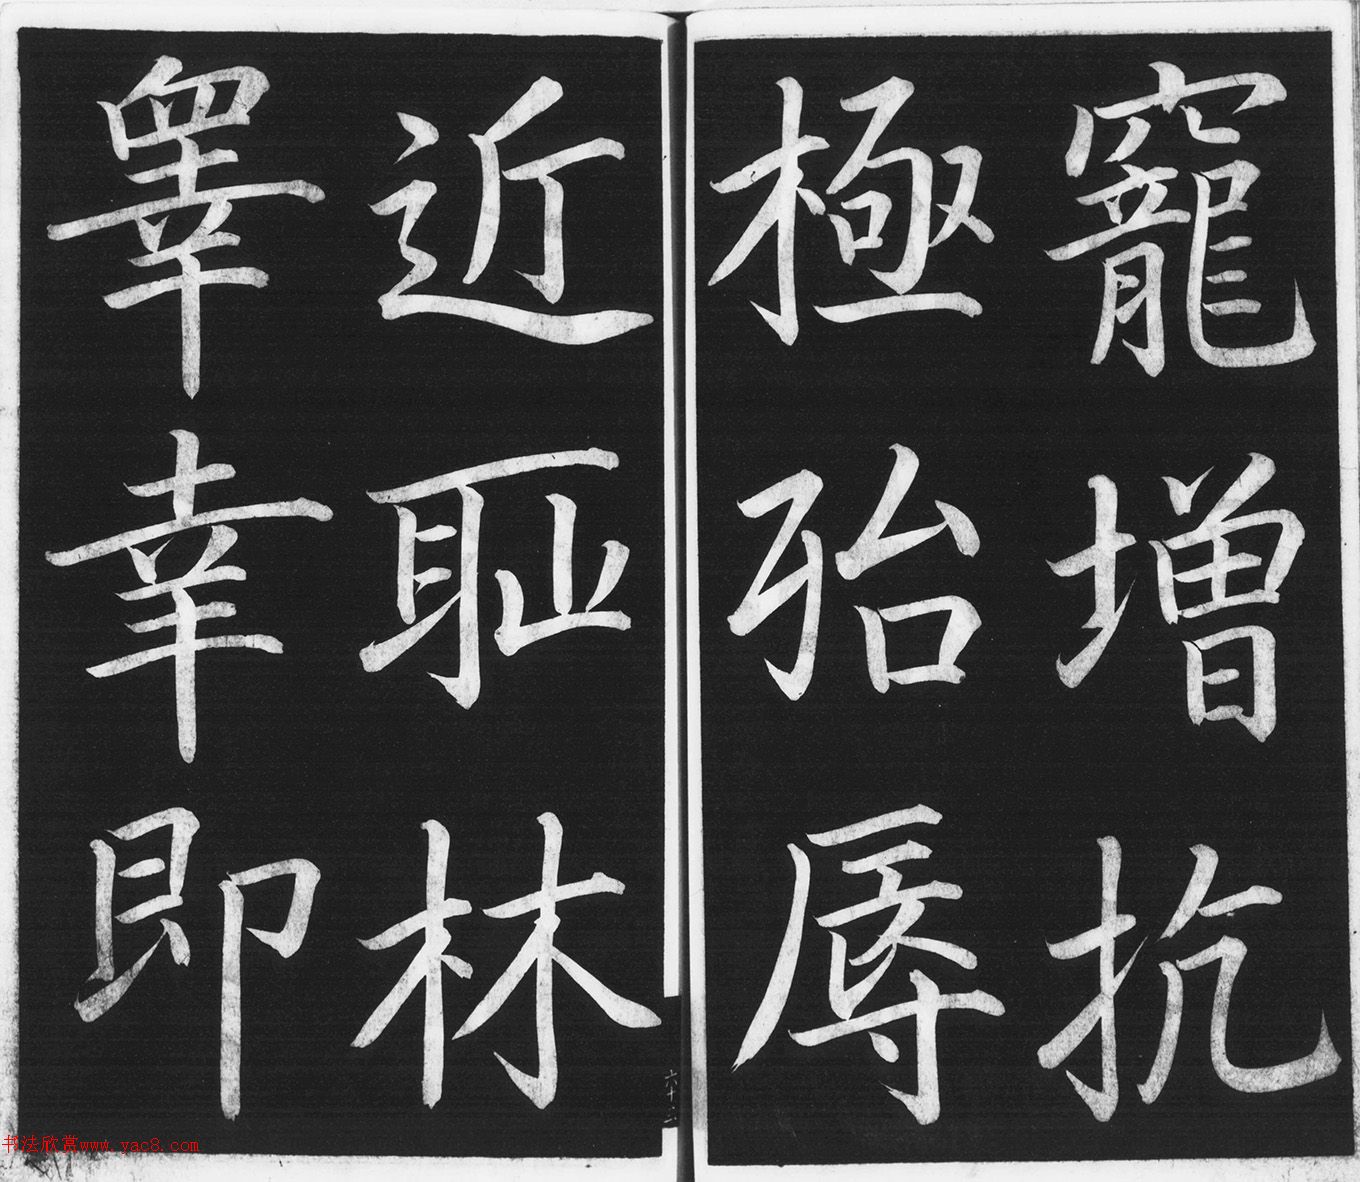 寵增抗
極殆辱
近耻林
睪幸即
六十二
书法欣赏www.yac8.com